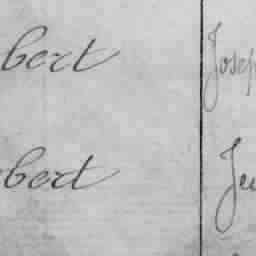 bert Josep
bert Je